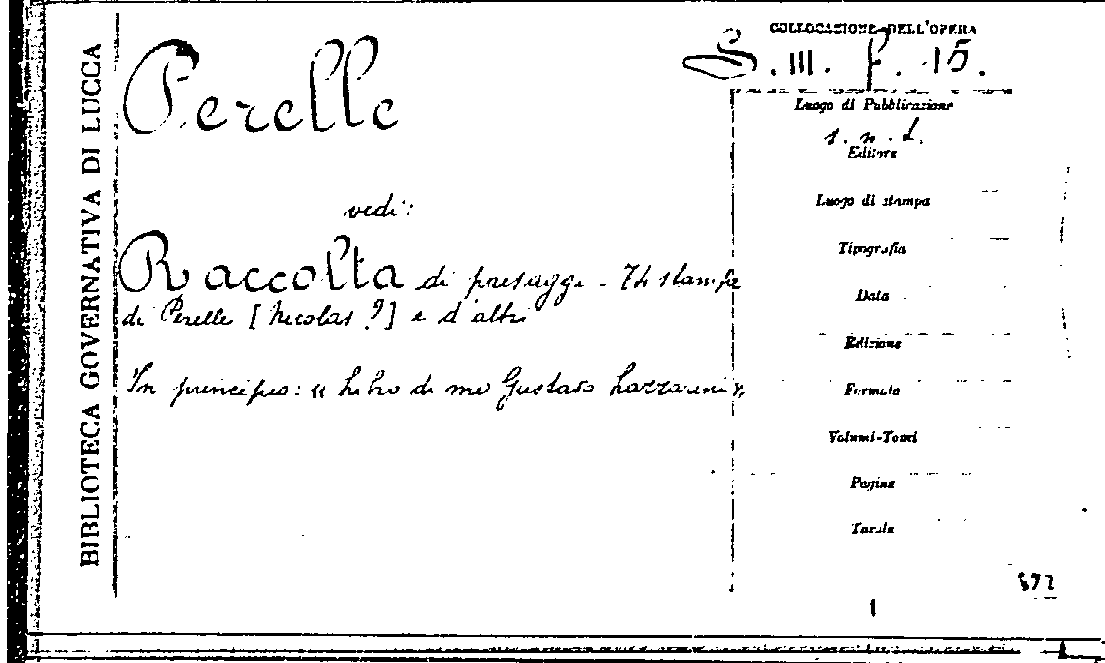 BIBLIOTECA GOVERNATIVA DI LUCCA
COLLOCAZIONE DELL'OPERA
S. III. F. 15.
Perelle
vedi:
Raccolta di paesaggi - 74 stampe
di Perelle [Nicolas?] e d'altri
In principio: "Libro di me Gustavo Lazzarini",
Luogo di Pubblicazione
s. n. t.
Editore
Luogo di stampa
Tipografia
Data
Edizione
Formato
Volumi-Tomi
Pagine
Tavole
1